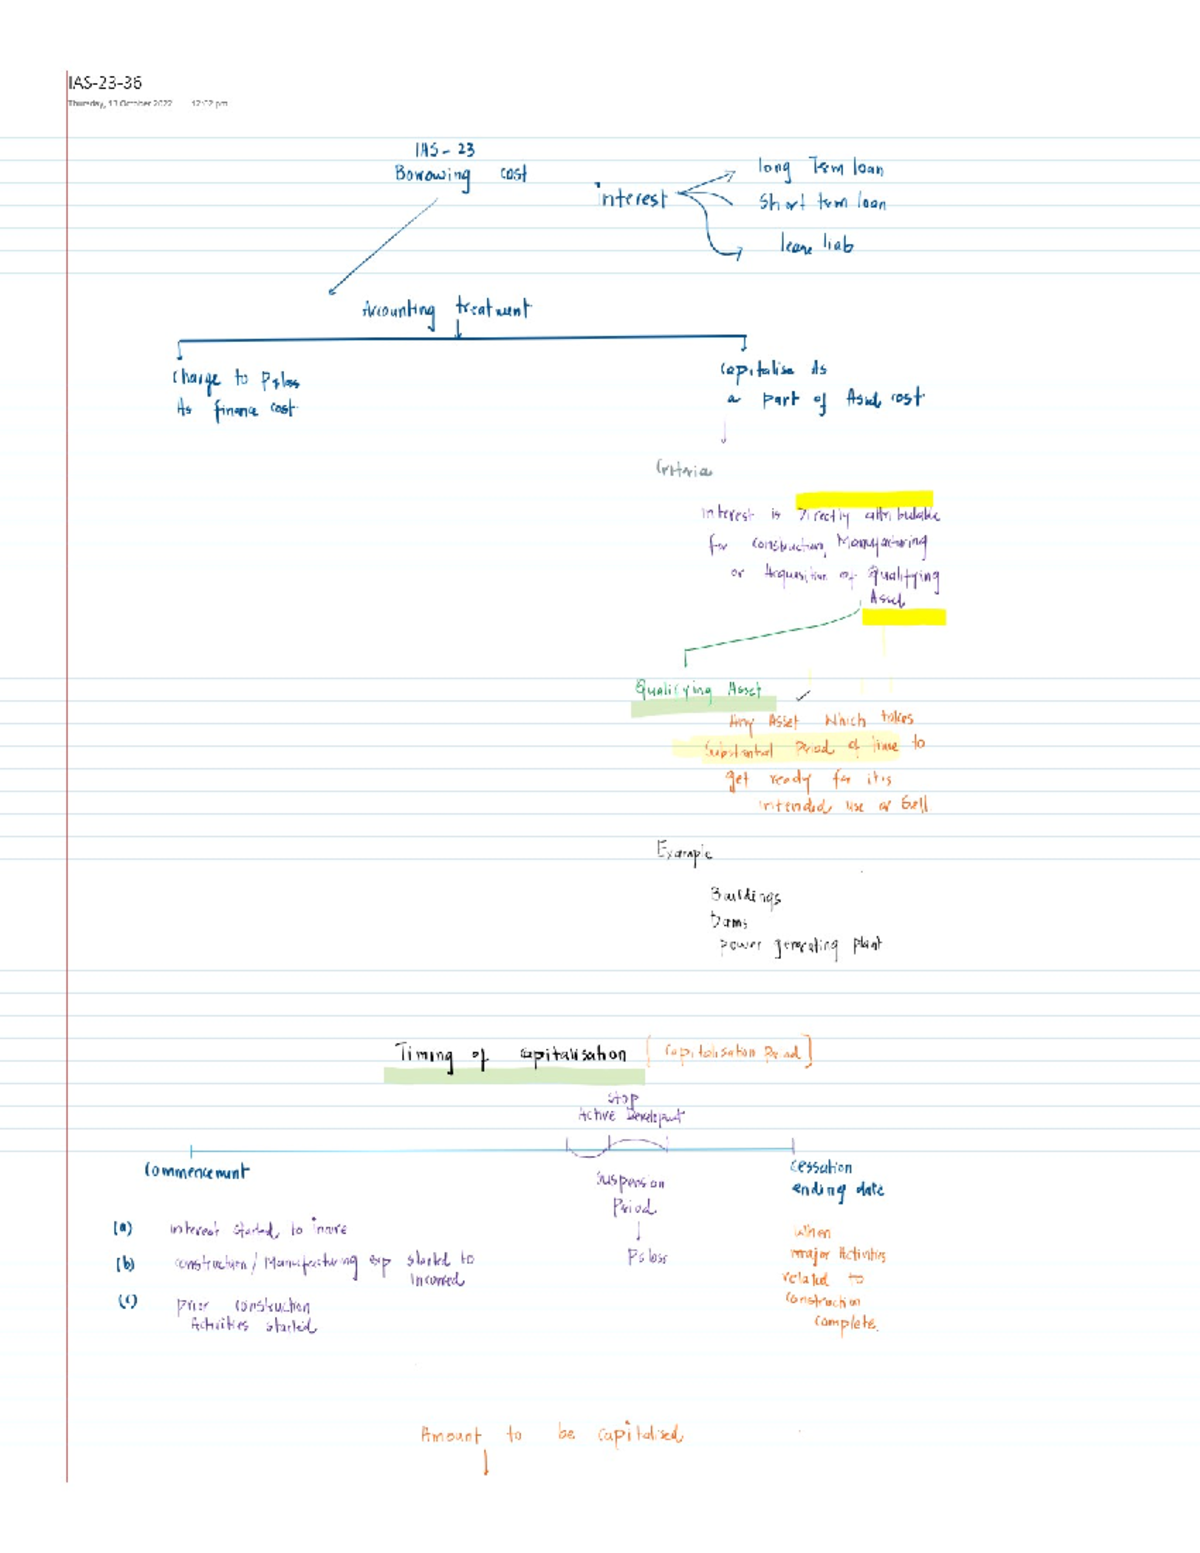 IAS-23-36
Thursday, 13 October 2022 12:02 pm
IAS - 23
Borrowing cost
interest
long Term loan
Short term loan
lease liab
Accounting treatment
Charge to P&loss
As finance cost
Capitalise As
a part of Asset cost
Criteria
interest is Directly attributable
for construction, Manufacturing
or Acquisition of Qualifying
Asset
Qualifying Asset
Any Asset which takes
Substantial Period of time to
get ready for its
intended use or Sell
Example
Buildings
Dams
power generating plant
Timing of capitalisation [Capitalisation Period]
Stop
Active Development
Commencement
Suspension
Period
P&loss
cessation
ending date
(a) interest started to incure
(b) construction/Manufacturing exp started to
incurred
(c) prior construction
Activities started
When
major Activities
related to
construction
Complete.
Amount to be capitalised